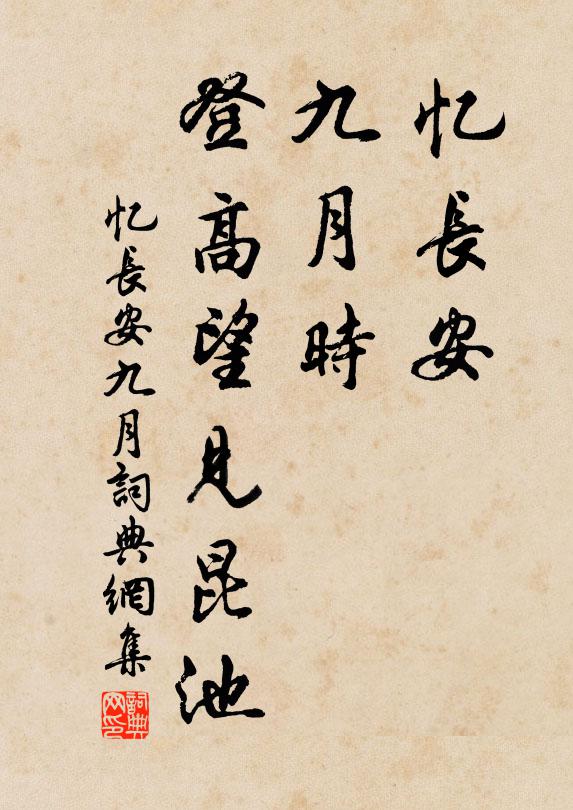 忆長安
九月時
登高望見昆池
忆長安九月詞典網集
詞典网印